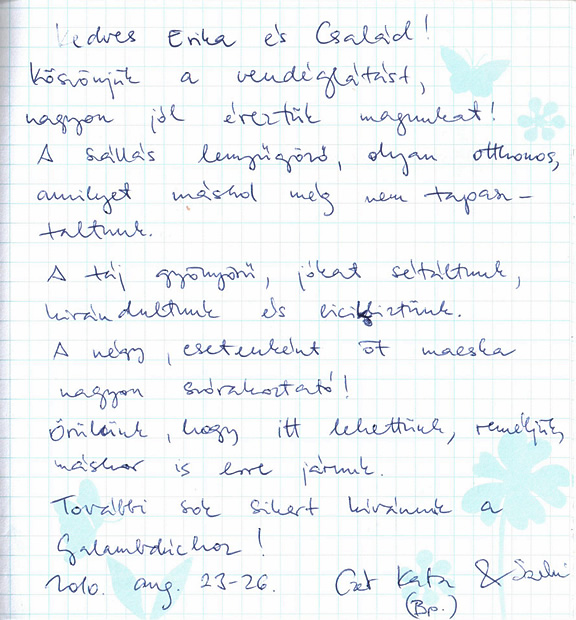 Kedves Erika és Család!
Köszönjük a vendéglátást,
nagyon jól éreztük magunkat!
A szállás lenyűgöző, olyan otthonos,
amilyet máshol még nem tapasz-
taltunk.
A táj gyönyörű, jókat sétáltunk,
kirándultunk és bicikliztünk.
A négy, esetenként öt macska
nagyon szórakoztató!
Örülünk, hogy itt lehettünk, reméljük,
máskor is erre járunk.
További sok sikert kívánunk a
Galambdúchoz!
2010. aug. 23-26. Kata &
(Bp.)